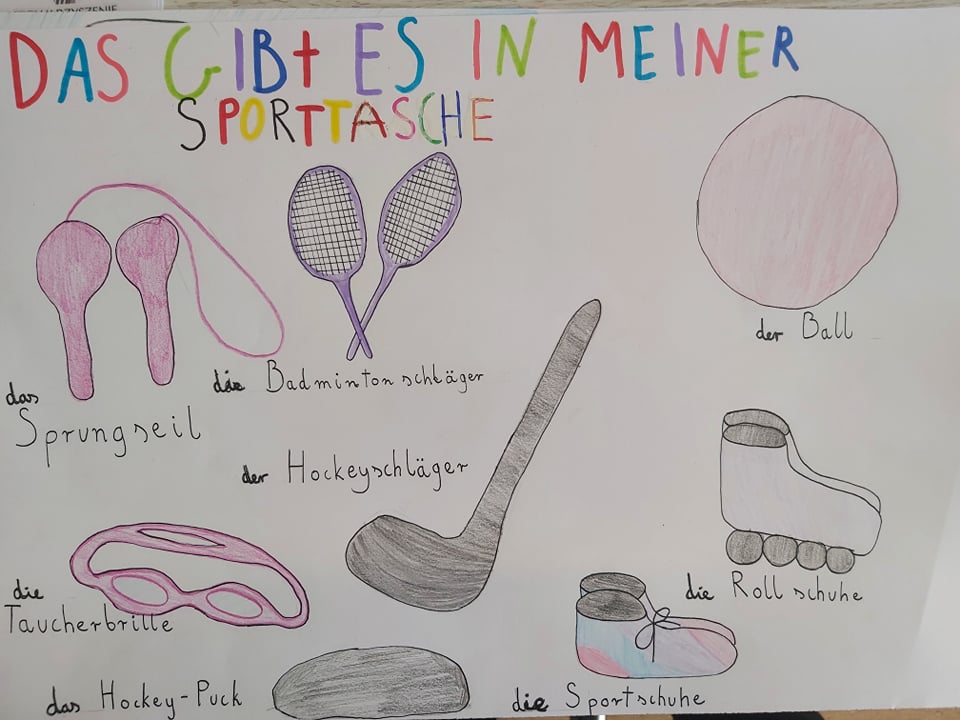 DAS GIBt ES IN MEINER
SPORTTASCHE
der Ball
das
Sprungseil
die Badmintonschläger
der Hockeyschläger
die
Taucherbrille
die Rollschuhe
das Hockey-Puck
die Sportschuhe